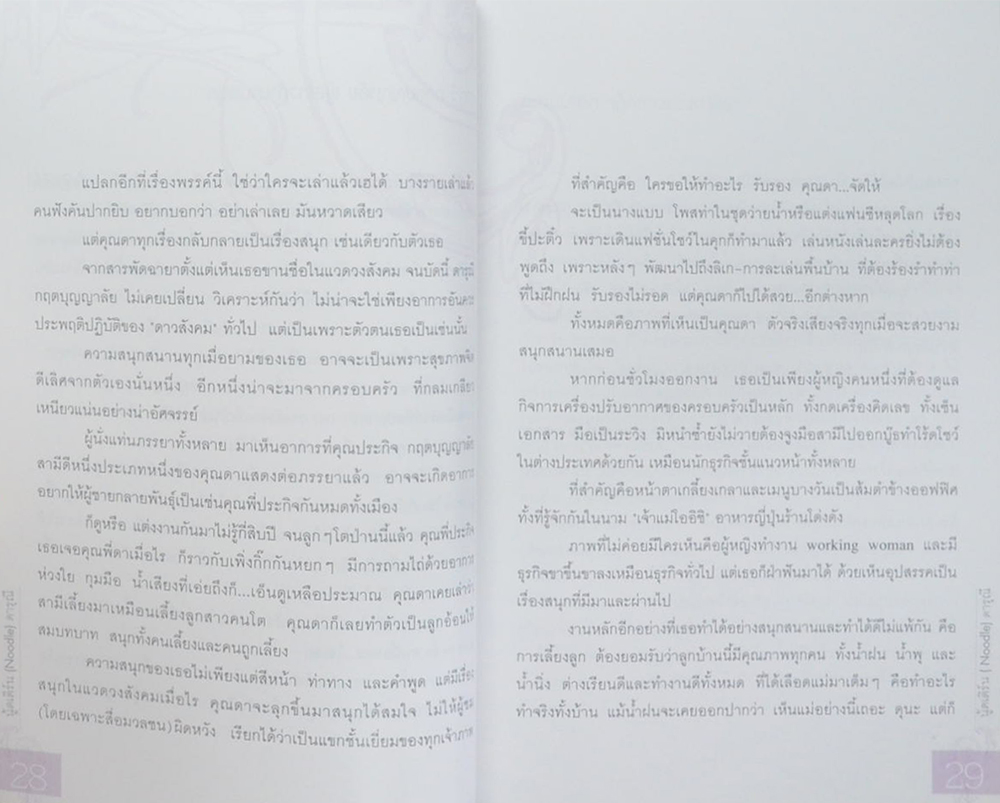 แปลกอีกที่เรื่องพรรค์นี้ ใช่ว่าใครจะเล่าแล้วเฮได้ บางรายเล่าแล้ว
คนฟังคันปากยิบ อยากบอกว่า อย่าเล่าเลย มันหวาดเสียว
แต่คุณดาทุกเรื่องกลับกลายเป็นเรื่องสนุก เช่นเดียวกับตัวเธอ
จากสารพัดฉายาตั้งแต่เห็นเธอขานชื่อในแวดวงสังคม จนบัดนี้ ดารุณี
กฤตบุญญาลัย ไม่เคยเปลี่ยน วิเคราะห์กันว่า ไม่น่าจะใช่เพียงอาการอันควร
ประพฤติปฏิบัติของ "ดาวสังคม" ทั่วไป แต่เป็นเพราะตัวตนเธอเป็นเช่นนั้น
ความสนุกสนานทุกเมื่อยามของเธอ อาจจะเป็นเพราะสุขภาพจิต
ดีเลิศจากตัวเองนั่นหนึ่ง อีกหนึ่งน่าจะมาจากครอบครัว ที่กลมเกลียว
เหนียวแน่นอย่างน่าอัศจรรย์
ผู้นั่งแท่นภรรยาทั้งหลาย มาเห็นอาการที่คุณประกิจ กฤตบุญญาลัย
สามีดีหนึ่งประเภทหนึ่งของคุณดาแสดงต่อภรรยาแล้ว อาจจะเกิดอาการ
อยากให้ผู้ชายกลายพันธุ์เป็นเช่นคุณพี่ประกิจกันหมดทั้งเมือง
ก็ดูหรือ แต่งงานกันมาไม่รู้กี่สิบปี จนลูกๆ โตป่านนี้แล้ว คุณพี่ประกิจ
เธอเจอคุณพี่ดาเมื่อไร ก็ราวกับเพิ่งกิ๊กกันหยกๆ มีการถามไถ่ด้วยอาการ
ห่วงใย กุมมือ น้ำเสียงที่เอ่ยถึงก็...เอ็นดูเหลือประมาณ คุณดาเคยเล่าว่า
สามีเลี้ยงมาเหมือนเลี้ยงลูกสาวคนโต คุณดาก็เลยทำตัวเป็นลูกอ้อนให้
สมบทบาท สนุกทั้งคนเลี้ยงและคนถูกเลี้ยง
ความสนุกของเธอไม่เพียงแต่สีหน้า ท่าทาง และคำพูด แต่มีเรื่อง
สนุกในแวดวงสังคมเมื่อไร คุณดาจะลุกขึ้นมาสนุกได้สมใจ ไม่ให้ผู้ชม
(โดยเฉพาะสื่อมวลชน) ผิดหวัง เรียกได้ว่าเป็นแขกชั้นเยี่ยมของทุกเจ้าภาพ
นู้ดเดิร์น [Noodle] ดารุณี
28
ที่สำคัญคือ ใครขอให้ทำอะไร รับรอง คุณดา...จัดให้
จะเป็นนางแบบ โพสท่าในชุดว่ายน้ำหรือแต่งแฟนซีหลุดโลก เรื่อง
ขี้ปะติ๋ว เพราะเดินแฟชั่นโชว์ในคุกก็ทำมาแล้ว เล่นหนังเล่นละครยิ่งไม่ต้อง
พูดถึง เพราะหลังๆ พัฒนาไปถึงลิเก-การละเล่นพื้นบ้าน ที่ต้องร้องรำทำท่า
ที่ไม่ฝึกฝน รับรองไม่รอด แต่คุณดาก็ไปได้สวย...อีกต่างหาก
ทั้งหมดคือภาพที่เห็นเป็นคุณดา ตัวจริงเสียงจริงทุกเมื่อจะสวยงาม
สนุกสนานเสมอ
หากก่อนชั่วโมงออกงาน เธอเป็นเพียงผู้หญิงคนหนึ่งที่ต้องดูแล
กิจการเครื่องปรับอากาศของครอบครัวเป็นหลัก ทั้งกดเครื่องคิดเลข ทั้งเซ็น
เอกสาร มือเป็นระวิง มิหนำซ้ำยังไม่วายต้องจูงมือสามีไปออกบู๊ธทำโร้ดโชว์
ในต่างประเทศด้วยกัน เหมือนนักธุรกิจชั้นแนวหน้าทั้งหลาย
ที่สำคัญคือหน้าตาเกลี้ยงเกลาและเมนูบางวันเป็นส้มตำข้างออฟฟิศ
ทั้งที่รู้จักกันในนาม "เจ้าแม่โออิชิ" อาหารญี่ปุ่นร้านโด่งดัง
ภาพที่ไม่ค่อยมีใครเห็นคือผู้หญิงทำงาน working woman และมี
ธุรกิจขาขึ้นขาลงเหมือนธุรกิจทั่วไป แต่เธอก็ฝ่าฟันมาได้ ด้วยเห็นอุปสรรคเป็น
เรื่องสนุกที่มีมาและผ่านไป
งานหลักอีกอย่างที่เธอทำได้อย่างสนุกสนานและทำได้ดีไม่แพ้กัน คือ
การเลี้ยงลูก ต้องยอมรับว่าลูกบ้านนี้มีคุณภาพทุกคน ทั้งน้ำฝน น้ำพุ และ
น้ำนิ่ง ต่างเรียนดีและทำงานดีทั้งหมด ที่ได้เลือดแม่มาเต็มๆ คือทำอะไร
ทำจริงทั้งบ้าน แม้น้ำฝนจะเคยออกปากว่า เห็นแม่อย่างนี้เถอะ ดุนะ แต่ก็
นู้ดเดิร์น [Noodle] ดารุณี
29